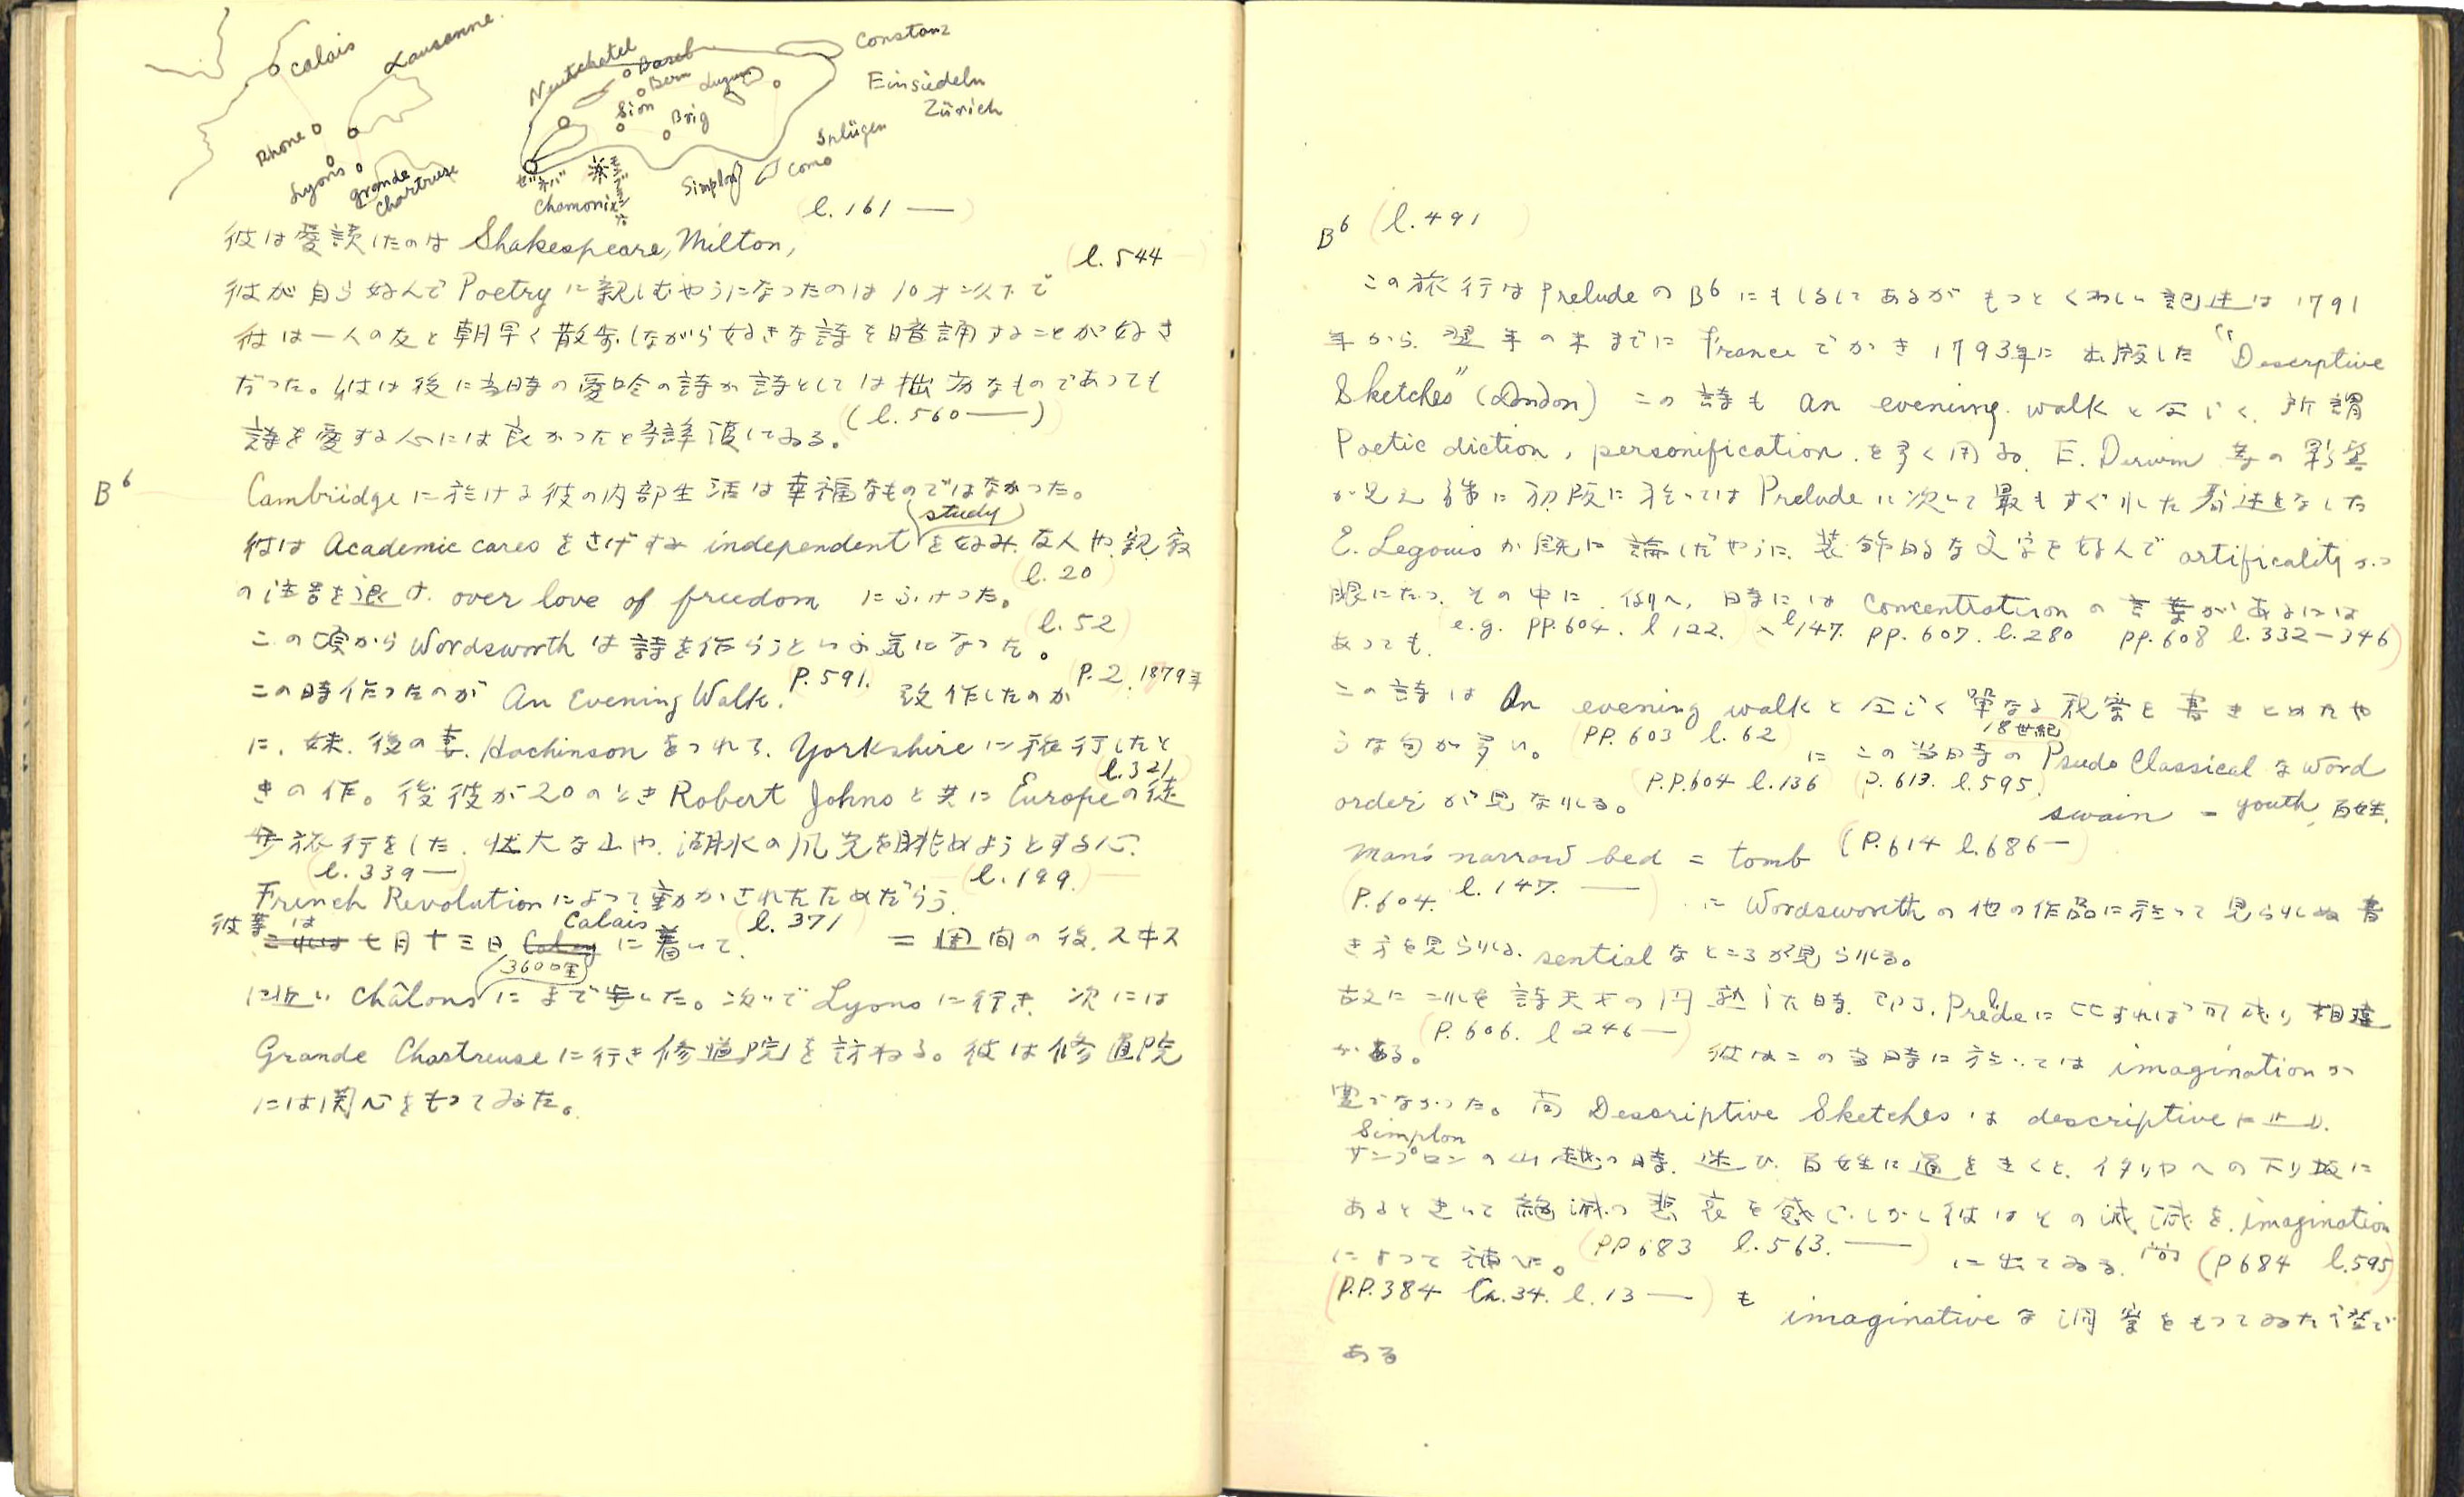 Calais
Lausanne.
Rhone
Lyons
Grande Chartruse
Neutchatel
Basel
Bern
Luzern
Sion
Brig
Constanz
Einsiedeln
Zürich
Splügen
Como
Simplon
ゼネバ
モンブラン
Chamonix
(l. 161 ―)
彼は愛読したのは Shakespeare, Milton,
(l. 544
彼が自ら好んで Poetry に親しむやうになったのは 10才以下で
彼は一人の友と朝早く散歩しながら好きな詩を暗誦することが好き
だった。彼は後に当時の愛吟の詩が詩としては拙劣なものであっても
詩を愛する心には良かったと弁護してゐる。(l. 560 ―)
B⁶
Cambridge に於ける彼の内部生活は幸福なものではなかった。
彼は Academic cares をさげすみ independent (study) を好み、友人や親戚
の注告を退け over love of freedom にふけった。(l. 20)
この頃から Wordsworth は詩を作らうといふ気になった。(l. 52)
この時作ったのが An Evening Walk. P. 591. 改作したのが P. 2. 1879年
に、妹、後の妻 Hochinson をつれて、Yorkshire に旅行したと
きの作。後彼が20のとき Robert Johns と共に Europe の徒 (l. 321
歩旅行をした。壮大な山や、湖水の風光を眺めようとする心?
(l. 339 ―) (l. 199.) ―
French Revolution によって動かされたためだらう.
彼等は 七月十三日 Calais に着いて. (l. 371) 二週間の後、スヰス
に近い Châlons に (360哩) まで歩いた。次いで Lyons に行き、次には
Grande Chartreuse に行き修道院を訪ねる。彼は修道院
には関心をもってゐた。
B⁶ (l. 491 )
この旅行は Prelude の B⁶ にもしるしてあるがもっとくわしい記述は 1791
年から翌年の末までに France でかき 1793年に出版した "Descrptive
Sketches" (London) この詩も an evening walk と同じく、所謂
Poetic diction, personification を多く用ゐ、E. Derwin 等の影響
が見え 殊に初版に於いては Prelude に次いで最もすぐれた 著述をなした
E. Legouis が既に論じたやうに、装飾的な文字を好んで artificality が
眼にたつ、その中に、例へ、時には Concentration の言葉があるには
あっても、e.g. PP. 604. l 122. l 147. pp. 607. l. 280 pp. 608 l. 332―346)
この詩は An evening walk と同じく単なる視察を書きとめたや
うな句が多い。(PP. 603 l. 62) に この当時の 18世紀 Psudo Classical な word
order が見なれる。(P.P. 604 l. 136) (P. 613. l. 595.
swain = youth, 百姓.
man's narrow bed = tomb (P. 614 l. 686 ―)
(P. 604. l. 147. ―) に Wordsworth の他の作品に於いて見られぬ書
き方を見られる. sential なところが見られる。
故に これを詩天才の円熟した時、即ち、Prelude に比すれば可成り相違
がある。(P. 606. l 246 ―) 彼はこの当時に於いては imagination が
豊でなかった。尚 Descriptive Sketches は descriptive に止る.
Simplon
サンプロンの山越の時、迷ひ、百姓に道をきくと、イタリヤへの下り坂に
あると走って絶滅の悲哀を感じ、しかし彼はその滅滅を imagination
によって補へた。(PP 683 l. 563. ―) に出てゐる、尚 (P 684 l. 595)
(P.P. 384 Ca. 34. l. 13 ―) も imaginative な洞察をもってゐた證で
ある